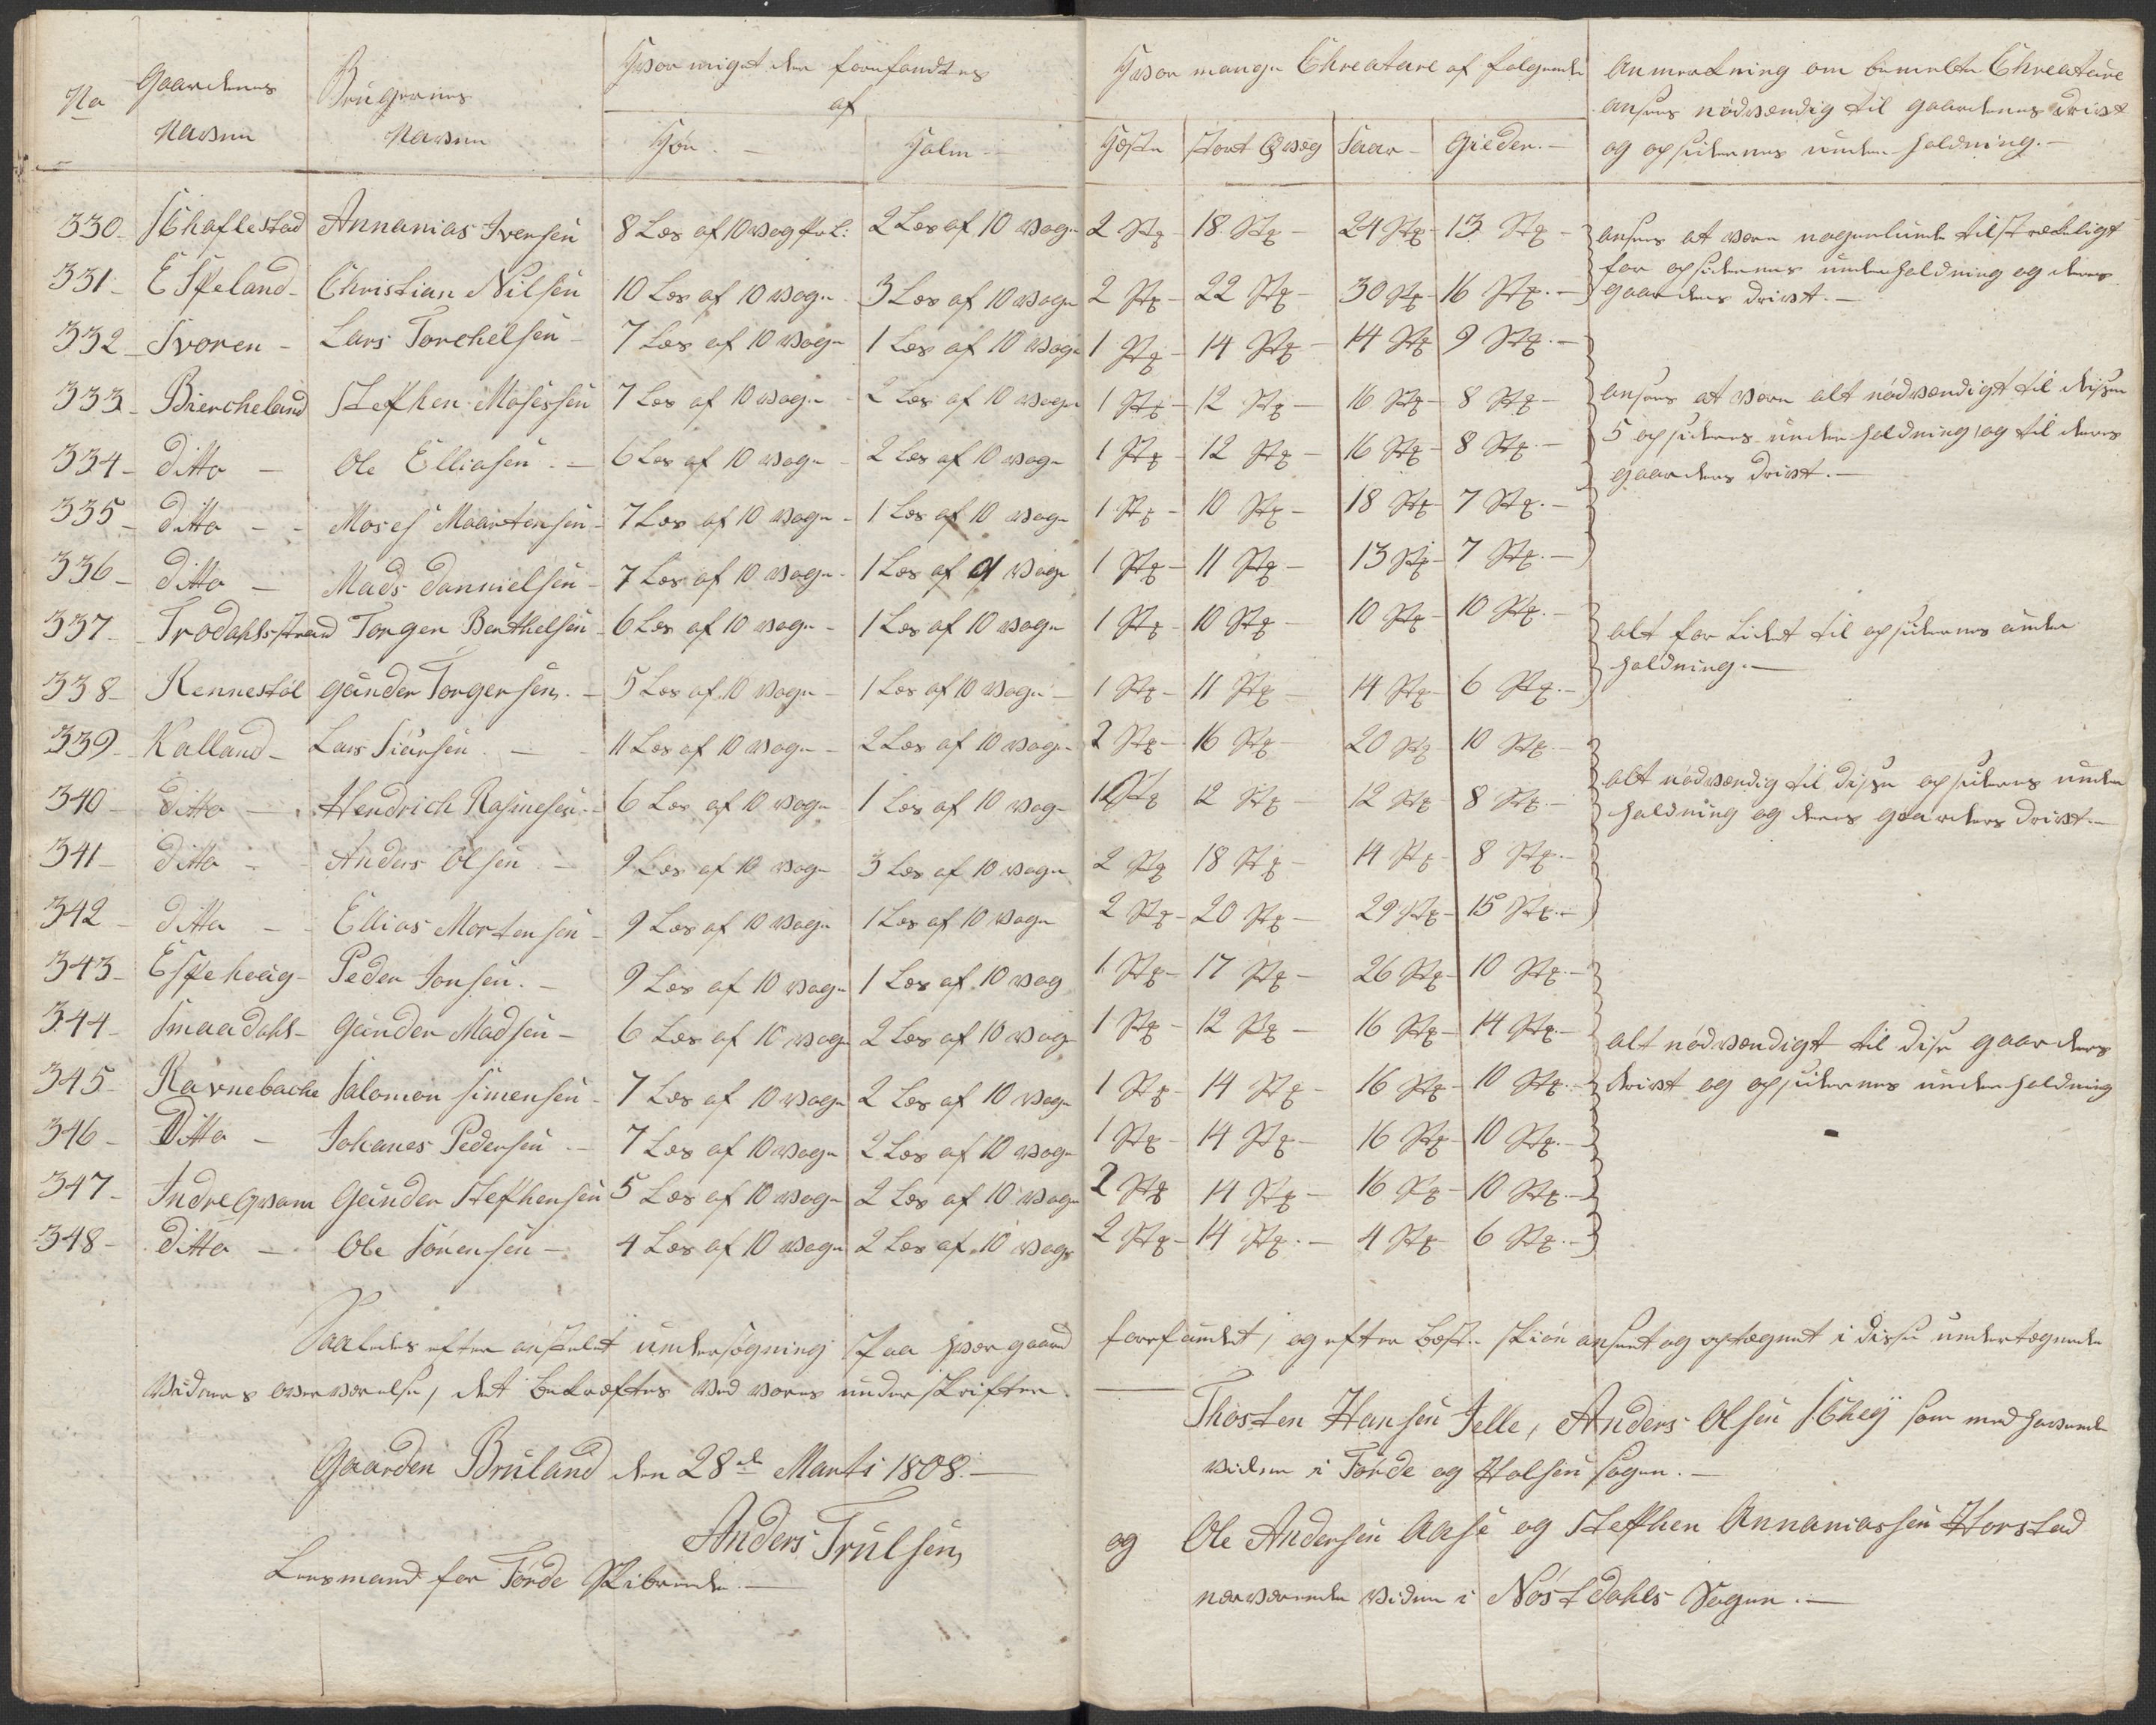 No Gaardenes Navne Brugernes Navne Hvor miget der forefandtes af Høe Halm Hvor mange Chreature af følgende Heste stort Qvæg Faar Gieder Anmerkning om bemelte Chreature
ansees nødvendig til gaardenes drivt
og opsidernes underholdning.
330 Schaflestad Annanias Iversen 8 Læs af 10 vog pr L: 2 Læs af 10 voge 2 Stk 18 Stk 24 Stk 13 Stk
ansees at være nogenlunde tilstrækeligt
for opsidernes underholdning og deres
gaarders drivt.
331 Espeland Christian Nilsen 10 Læs af 10 voge 3 Læs af 10 voge 2 Stk 22 Stk 30 Stk 16 Stk
332 Svoren Lars Torchelsen 7 Læs af 10 voge 1 Læs af 10 voge 1 Stk 14 Stk 14 Stk 9 Stk
333 Biercheland Stephen Mosessen 7 Læs af 10 voge 2 Læs af 10 voge 1 Stk 12 Stk 16 Stk 8 Stk
ansees at være alt nødvendigt til disse
5 opsideres underholdning, og til deres
gaarders drivt.
334 ditto Ole Elliasen 6 Læs af 10 voge 2 Læs af 10 voge 1 Stk 12 Stk 16 Stk 8 Stk
335 ditto Moses Maartensen 7 Læs af 10 voge 1 Læs af 10 voge 1 Stk 10 Stk 18 Stk 7 Stk
336 ditto Mads Dannielsen 7 Læs af 10 voge 1 Læs af voge 1 Stk 11 Stk 13 Stk 7 Stk
337 Trodahlsstrand Torger Benthelsen 6 Læs af 10 voge 1 Læs af 10 voge 1 Stk 10 Stk 10 Stk 10 Stk
alt for Lidet til opsidernes under
holdning.
338 Kennestøl Gunder Torgersen 5 Læs af 10 voge 1 Læs af 10 voge 1 Stk 11 Stk 14 Stk 6 Stk
339 Kalland Lars Siursen 11 Læs af 10 voge 2 Læs af 10 voge 2 Stk 16 Stk 20 Stk 10 Stk
alt nødvendig til disse opsideres under
holdning og deres gaarders drivt.
340 ditto Hendrich Rasmesen 6 Læs af 10 voge 1 Læs af 10 voge 1 Stk 12 Stk 12 Stk 8 Stk
341 ditto Anders Olsen 9 Læs af 10 voge 3 Læs af 10 voge 2 Stk 18 Stk 14 Stk 8 Stk
342 ditto Ellias Mortensen 9 Læs af 10 voge 1 Læs af 10 voge 2 Stk 20 Stk 29 Stk 15 Stk
343 Espehoug Peder Jonsen 9 Læs af 10 voge 1 Læs af 10 vog 1 Stk 17 Stk 26 Stk 10 Stk
344 Smaadahl Gunder Madsen 6 Læs af 10 voge 2 Læs af 10 voge 1 Stk 12 Stk 16 Stk 14 Stk
alt nødvendigt til dise gaarders
drivt og opsidernes underholdning
345 Ravnebacke Salomon Simensen 7 Læs af 10 voge 2 Læs af 10 voge 1 Stk 14 Stk 16 Stk 10 Stk
346 Ditto Johanes Pedersen 7 Læs af 10 voge 2 Læs af 10 voge 1 Stk 14 Stk 16 Stk 10 Stk
347 Indre Qvam Gunder Stephensen 5 Læs af 10 voge 2 Læs af 10 voge 2 Stk 14 Stk 16 Stk 10 Stk
348 ditto Ole Sørensen 4 Læs af 10 voge 2 Læs af 10 voge 2 Stk 14 Stk 4 Stk 6 Stk
Saaledes efter anstelet undersøgning paa hver gaard forefundet, og efter beste skiøn ansent og optegnet i disse undertegnede
vidners overværelse, det bekræftes ved vores underskrifter.
Gaarden Bruland den 28de Marti 1808.
Anders Trulsen
Lensmand for Førde Skibrede.
Thosten Hansen Jelle, Anders Olsen Schey som medhavende
vidne i Førde og Holsen sogne.
og Ole Andersen Aase og Stephen Annaniassen Horstad
nærværende vidne i Nøstdahls Sogne.